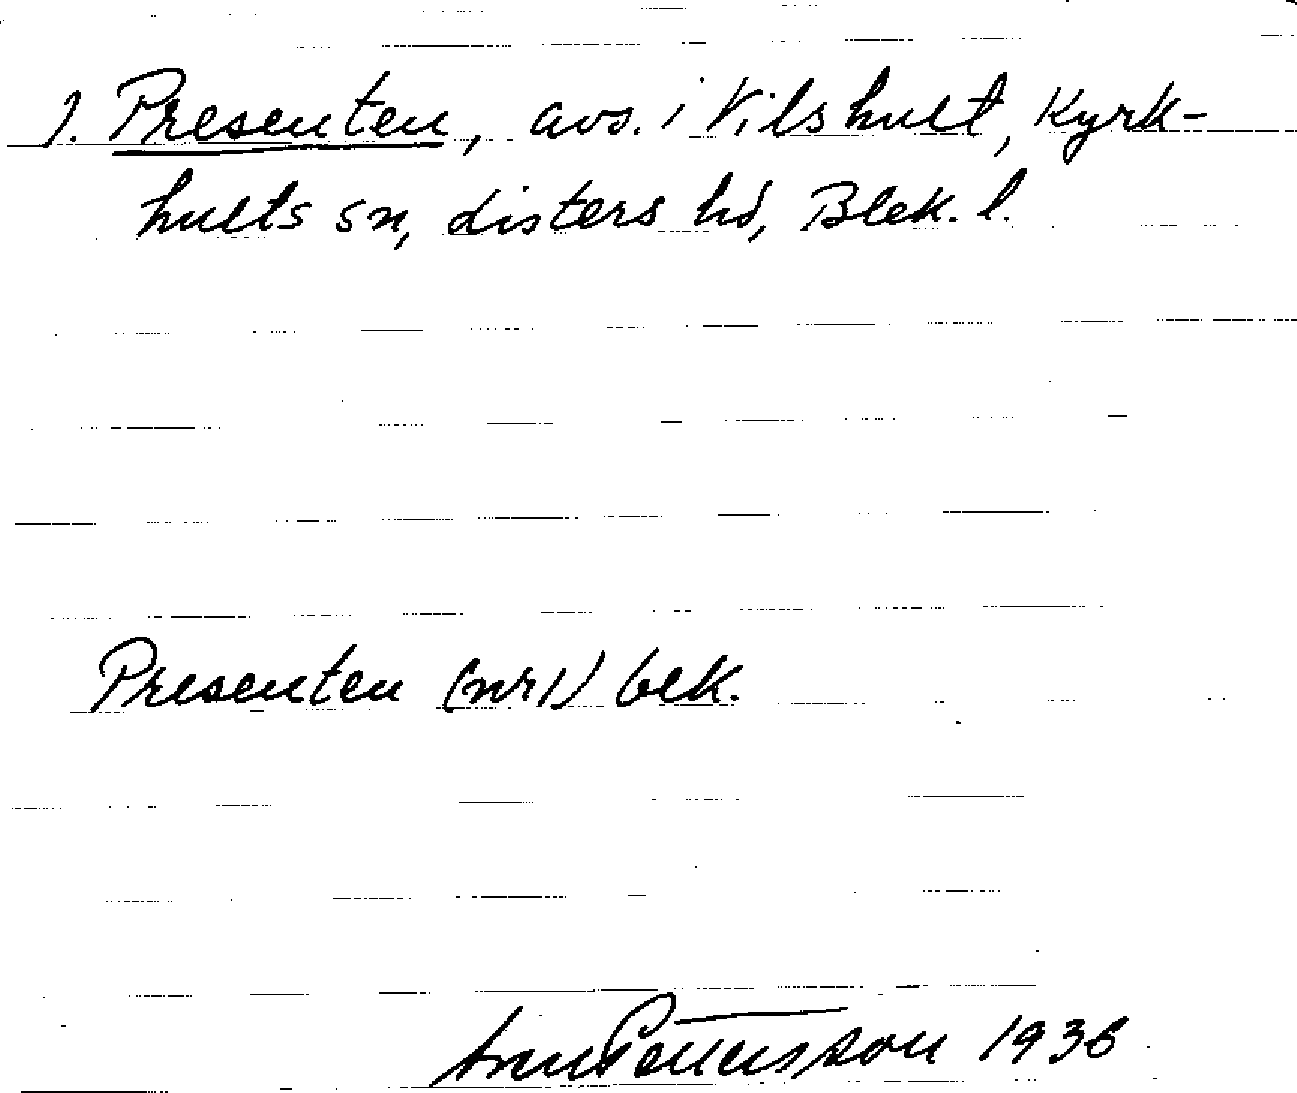 1. Presenten, avs. i Vilshult, Kyrk-
hults sn, Listers hd, Blek. l.
Presenten (nr 1) bek.
Pettersson 1936